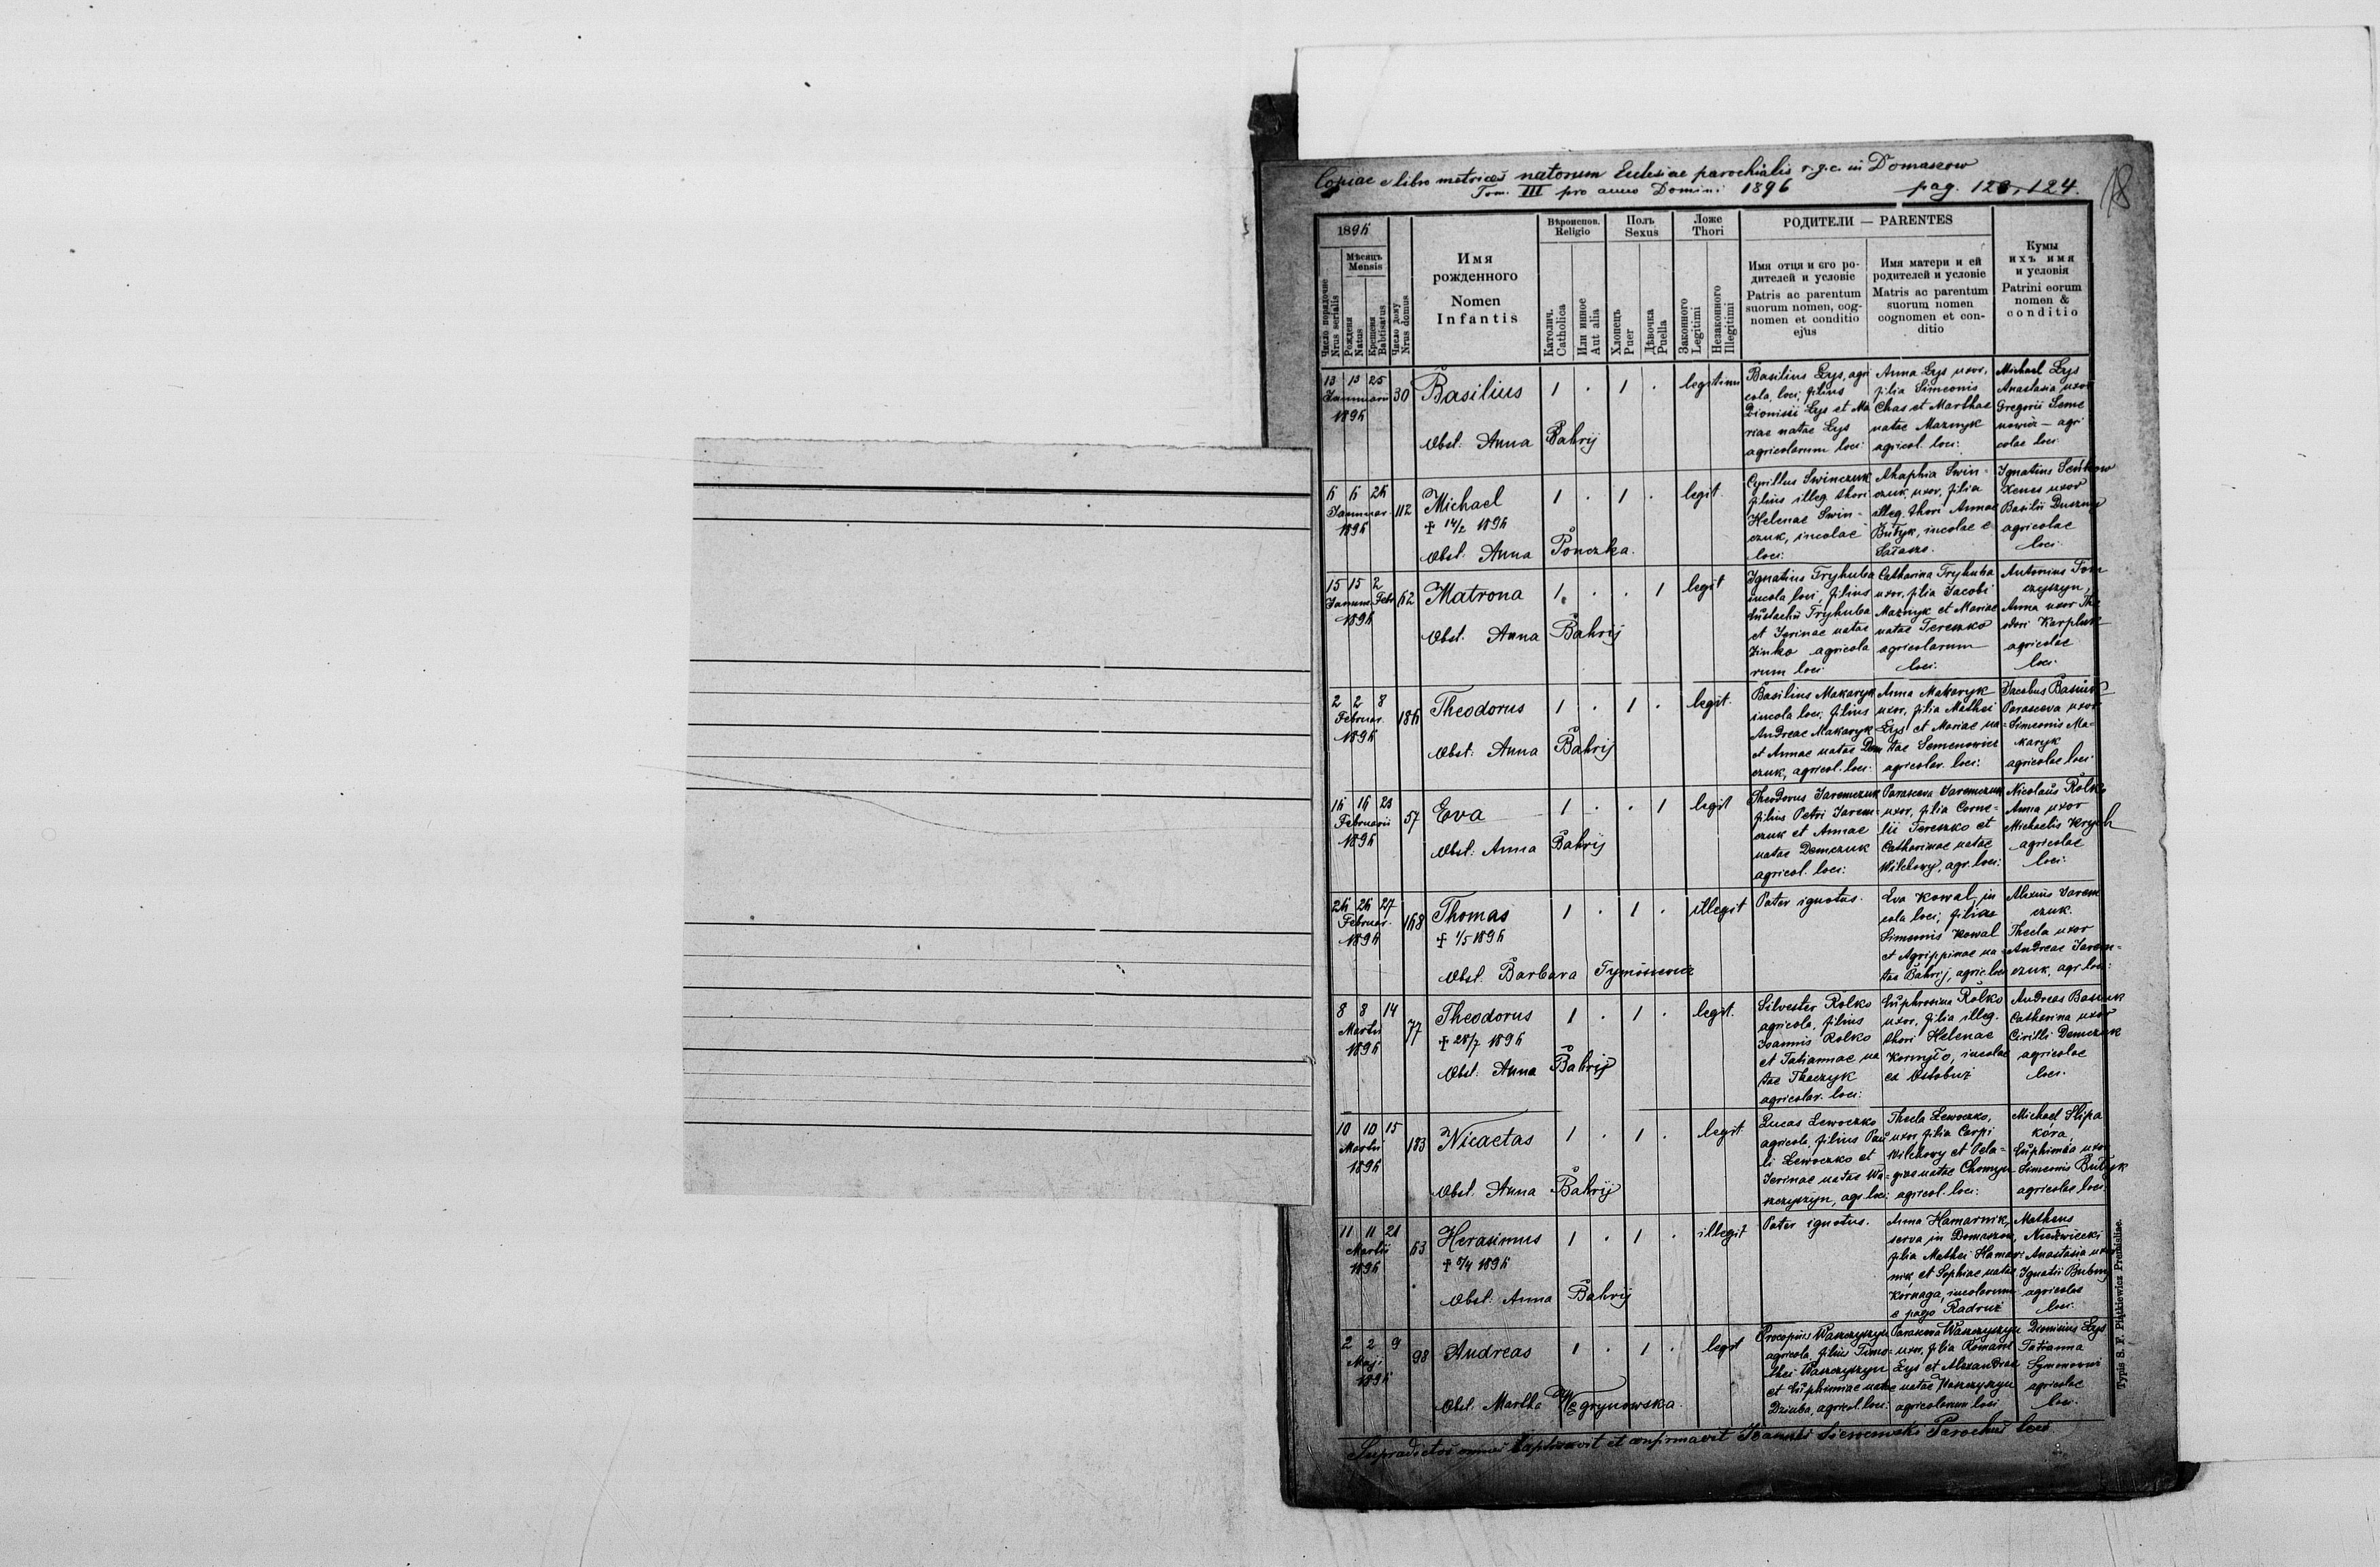 Copiae e libro metrices natorum Eclesiae parochialis r.g.c. in Domaszow
Tom. III pro anno Domini 1896 pag. 123, 124.
18
1896
Мѣсяцъ
Mensis
Число порядочне
Nrus serialis
Рожденя
Natus
Крещеня
Babtisatus
Число дому
Nrus domus
Имя
рожденного
Nomen
Infantis
Вѣроиспов.
Religio
Католич.
Catholica
Или инное
Aut alia
Полъ
Sexus
Хлопець
Puer
Дѣвочка
Puella
Ложе
Thori
Законного
Legitimi
Незаконного
Illegitimi
РОДИТЕЛИ — PARENTES
Имя отця и єго ро-
дителей и условіе
Patris ac parentum
suorum nomen, cog-
nomen et conditio
ejus
Имя матери и ей
родителей и условіе
Matris ac parentum
suorum nomen
cognomen et con-
ditio
Кумы
ихъ имя
и условія
Patrini eorum
nomen &
conditio
13 13 25
Januarii
1896
30
Basilius
Obst. Anna Bahrij
1 . 1 .
legitimi
Basilius Łys, agri
cola, loci, filius
Dionisii Łys et Ma
riae natae Łys
agricolarum loci
Anna Łys uxor,
filia Simeonis
Chas et Marthae
natae Maznyk
agricol. loci:
Michael Łys
Anastasia uxor
Gregorii Seme
nowicz — agri
colae loci
6 6 26
Januar.
1896
112
Michael
+ 14/2 1896
Obst. Anna Ponczka.
1 . 1 .
legit.
Cyrillus Swinczuk
filius illeg. thori
Helenae Swin-
czuk, incolae
loci:
Ahaphia Swin-
czuk, uxor, filia
illeg. thori Annae
Butyk, incolae e
Ignatius Senkow
Xenia uxor
Basilii Duszny
agricolae
loci.
15 15 2
Januar. Febr
1896
62
Matrona
Obst. Anna Bahrij
1 . . 1
legit
Ignatius Tryhuba
incola loci, filius
Eustachii Tryhuba
et Irinae natae
Zinko agricola
rum loci
Catharina Tryhuba
uxor, filia Jacobi
Maznyk et Mariae
natae Tereszko
agricolarum
loci.
Antonius Tom
czyszyn,
Anna uxor The
odori Karpluk
agricolae
loci.
2 2 8
Februar.
1896
186
Theodorus
Obst. Anna Bahrij
1 . 1 .
legit.
Basilius Makaryk
incola loci, filius
Andreae Makaryk
et Annae natae Dem
czuk, agricol. loci:
Anna Makaryk
uxor, filia Mathei
Łys et Mariae na-
tae Semenowicz
agricolar. loci:
Jacobus Basiuk
Parasceva uxor
Simeonis Ma-
karyk
agricolae loci
16 16 23
Februarii
1896
57
Eva
Obst: Anna Bahrij
1 . . 1
legit
Theodorus Jaremczuk
filius Petri Jarem-
czuk et Annae
natae Demczuk
agricol. loci:
Parasceva Jaremczuk
uxor, filia Corne-
lii Tereszko et
Catharinae natae
Wilchowy, agr. loci:
Nicolaus Rolko
Anna uxor
Michaelis Krych
agricolae
loci:
26 26 27
Februar.
1896
168
Thomas
+ 1/5 1896
Obst. Barbara Tymisiewicz
1 . 1 .
illegit
Pater ignotus.
Eva Kowal, in
cola loci, filia
Simeonis Kowal
et Agrippinae na-
tae Bahrij, agric. loci
Alexius Jarem
czuk.
Thecla uxor
Andreae Jarem-
czuk, agr. loci:
8 8 14
Martii
1896
77
Theodorus
+ 28/7 1896
Obst: Anna Bahrij
1 . 1 .
legit.
Silvester Rolko
agricola, filius
Joannis Rolko
et Tatiannae na
tae Tkaczyk
agricolar. loci:
Euphrosina Rolko
uxor, filia illeg.
thori Helenae
Kornyło, incolae
ex Ostobuż
Andreas Basiuk
Catharina uxor
Cirilli Demczuk
agricolae
loci.
10 10 15
Martii
1896
183
Nicaetas
Obst. Anna Bahrij
1 . 1 .
legit.
Lucas Lewoczko
agricola, filius Pau
li Lewoczko et
Irinae natae Wa-
szczyszyn, agr. loci:
Thecla Lewoczko,
uxor filia Carpi
Wilchowy et Pela-
giae natae Chomyn
agricol. loci:
Michael Slipa
kóra,
Euphimia uxor
Simeonis Butyk
agricolae loci:
11 11 21
Martii
1896
63
Herasimus
1896
Obst: Anna Bahrij
1 . 1 .
illegit
Pater ignotus.
Anna Hamarnik,
serva in Domaszow,
filia Mathei Hamar-
nik et Sophiae natae
Kornaga, incolarum
e pago Radruż
Matheus
Niedźwiecki
Anastasia uxor
Ignatii Bubnij
agricolae
loci.
2 2 9
Maji
1896
98
Andreas
Obst. Martha Węgrynowska.
1 . 1 .
legit
Procopius Waszczyszyn
agricola, filius Timo-
thei Waszczyszyn
et Euphimiae natae
Dziuba, agricol. loci:
Parasceva Waszczyszyn
uxor, filia Romani
Łys et Alexandrae
natae Waszczyszyn
agricolarum loci
Dionisius Łys
Tatianna
agricolae
loci.
Supradictos omnes baptisavit et confirmavit Parochus loci
Typis S. F. Piątkiewicz Premisliae.